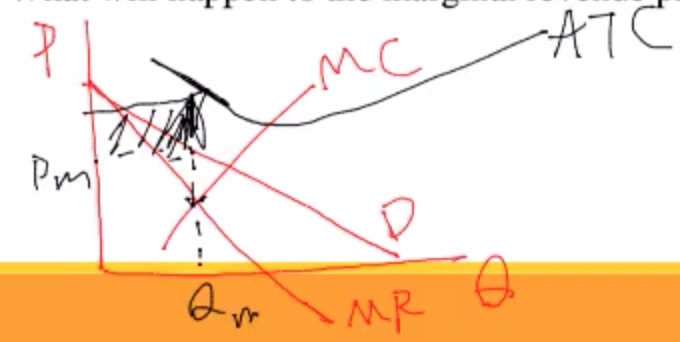 What will happen to the marginal revenue p
P
ATC
MC
Pm
D
Q
Qm
MR